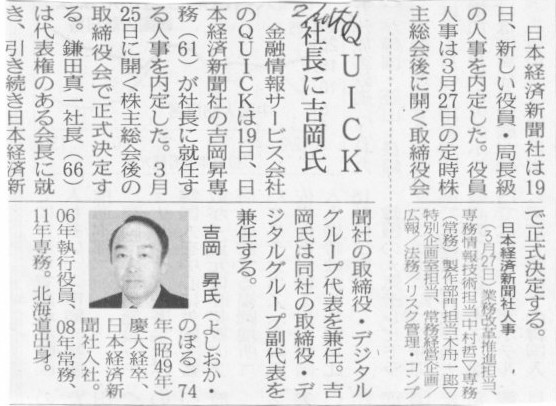 日本経済新聞社は19
日、新しい役員・局長級
の人事を内定した。役員
人事は3月27日の定時株
主総会後に開く取締役会
で正式決定する。
日本経済新聞社人事
(3月27日)業務改革推進担当、
専務情報技術担当中村哲▽専務
(常務)製作部門担当木舟一郎▽
特別企画室担当、常務経営企画/
広報/法務/リスク管理・コンプ
QUICK
社長に吉岡氏
金融情報サービス会社
のQUICKは19日、日
本経済新聞社の吉岡昇専
務(61)が社長に就任す
る人事を内定した。3月
25日に開く株主総会後の
取締役会で正式決定す
る。鎌田真一社長(66)
は代表権のある会長に就
き、引き続き日本経済新
聞社の取締役・デジタル
グループ代表を兼任。吉
岡氏は同社の取締役・デ
ジタルグループ副代表を
兼任する。
吉岡 昇氏(よしおか・
のぼる)74
年(昭49年)
慶大経卒、
日本経済新
聞社入社。
06年執行役員、08年常務、
11年専務。北海道出身。